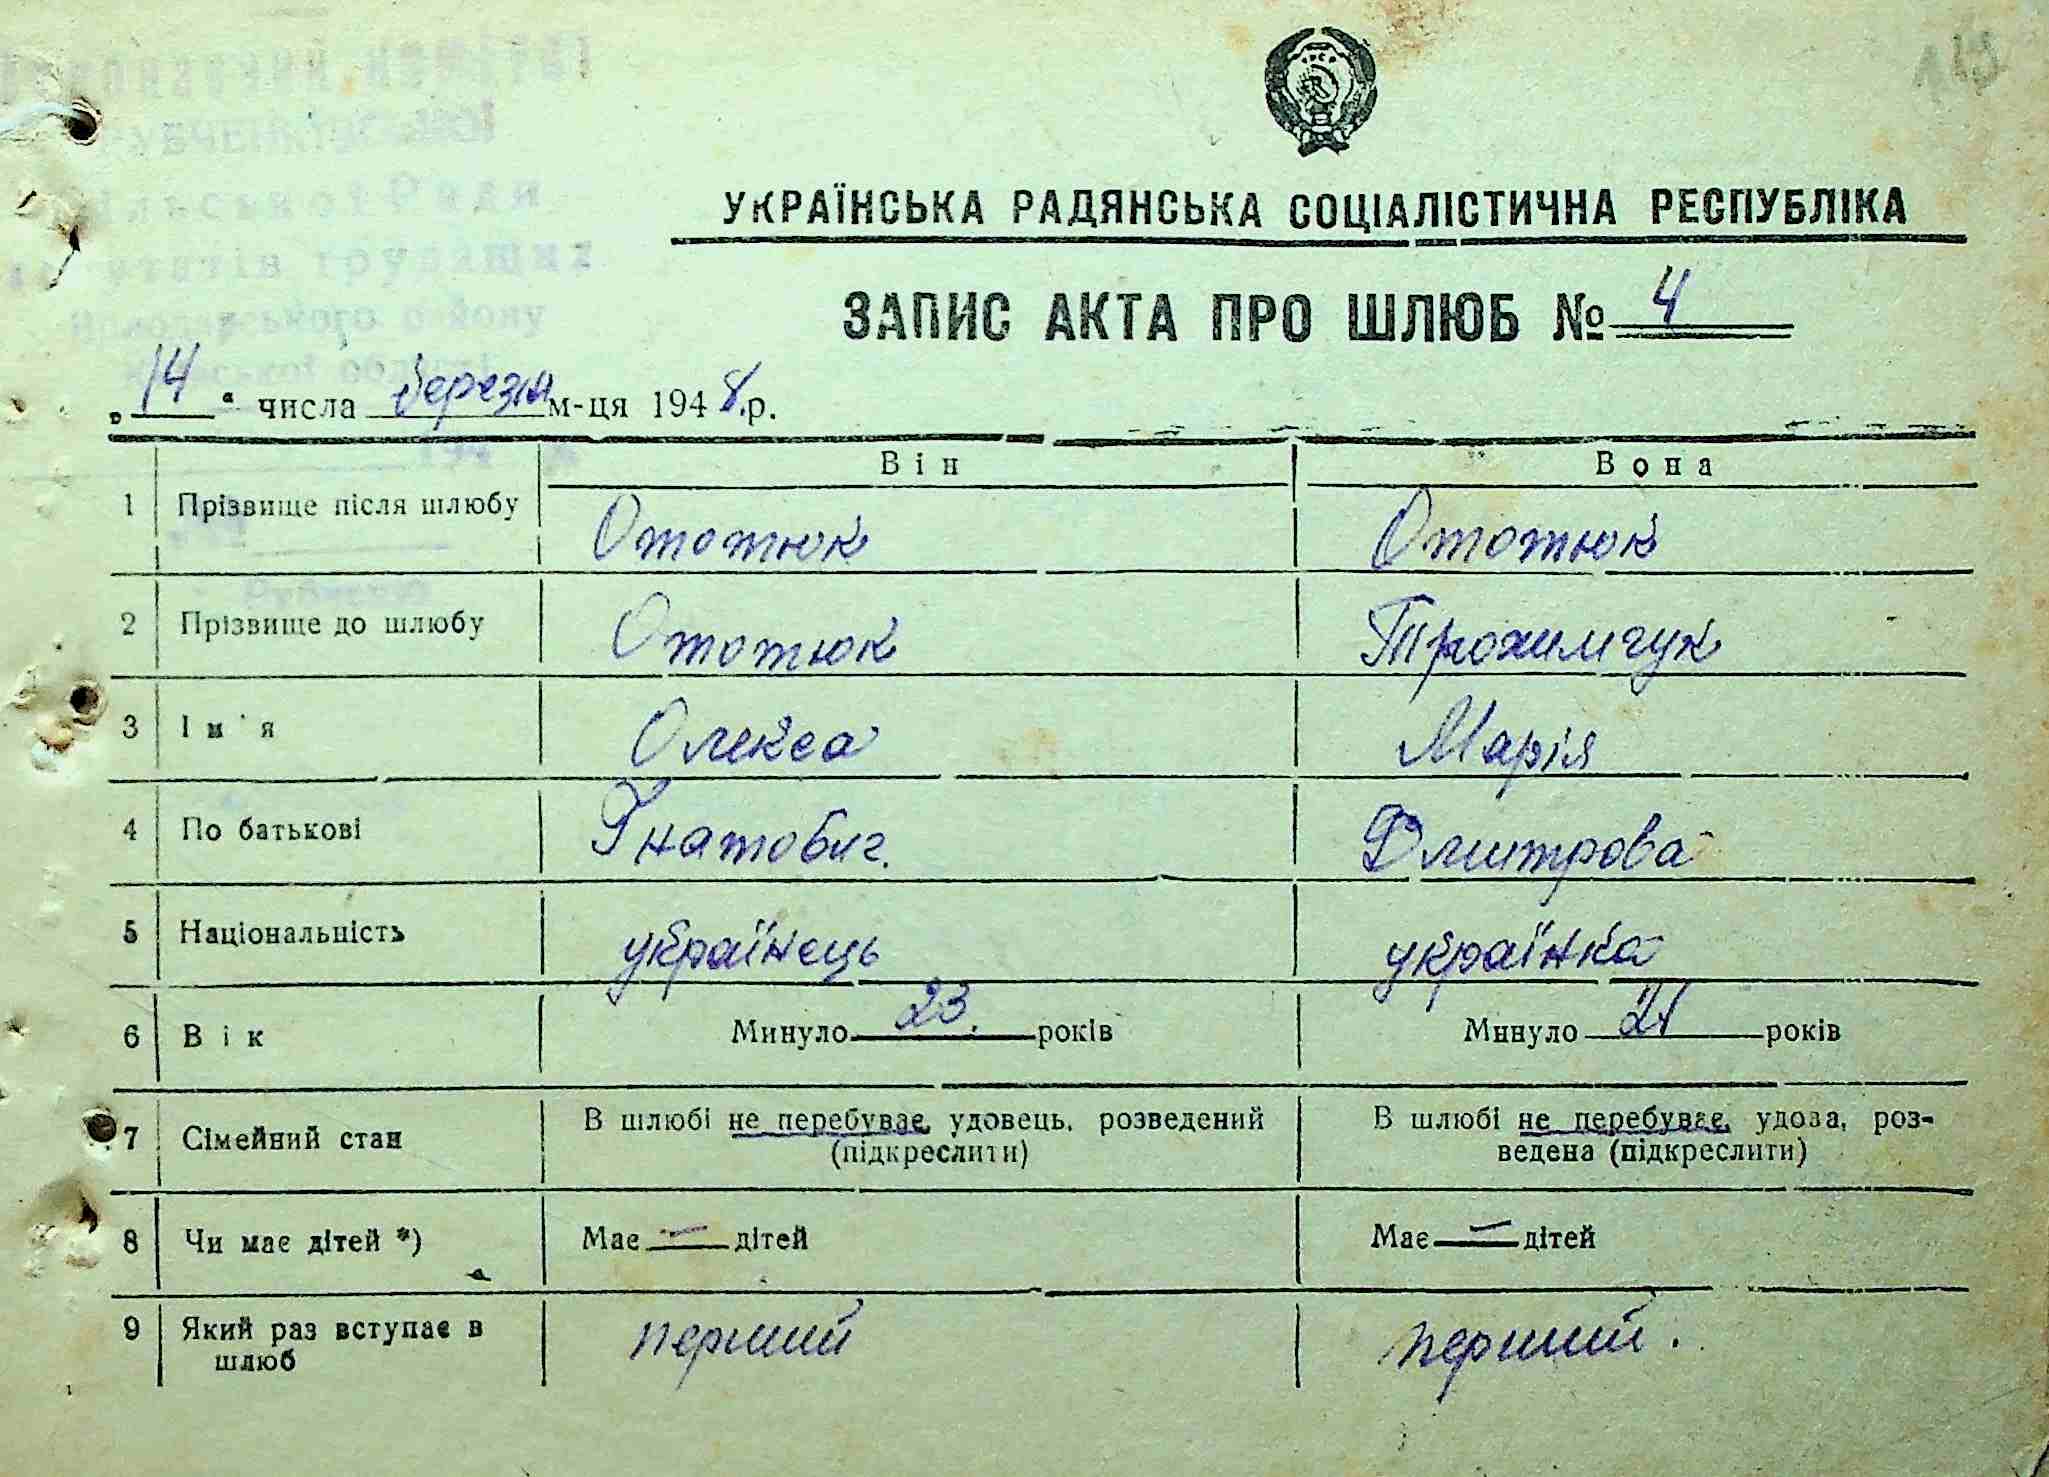 УКРАЇНСЬКА РАДЯНСЬКА СОЦІАЛІСТИЧНА РЕСПУБЛІКА
ЗАПИС АКТА ПРО ШЛЮБ № 4
„14“ числа березня м-ця 1948.р.
Він Вона
1 Прізвище після шлюбу Ототюк Ототюк
2 Прізвище до шлюбу Ототюк Трохимчук
3 Ім'я Олекса Марія
4 По батькові Гнатович. Дмитрова
5 Національність українець українка
6 Вік Минуло 23. років Минуло 21 років
7 Сімейний стан В шлюбі не перебуває, удовець, розведений (підкреслити) В шлюбі не перебуває, удова, роз-
ведена (підкреслити)
8 Чи має дітей *) Має — дітей Має — дітей
9 Який раз вступає в шлюб перший перший.